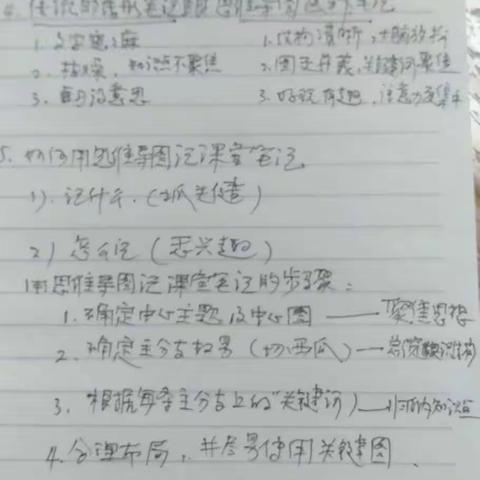 4. 传统的笔记跟思维导图的笔记
1. 文字 1. 结构清晰,大脑放松
2. 枯燥,知识点不聚焦 2. 图文并茂,关键词聚焦
3. 没意思 3. 好玩有趣,注意力集中
5. 如何用思维导图记课堂笔记
1). 记什么.(
2) 怎么记(兴趣)
用思维导图记课堂笔记的步骤:
1. 确定中心主题及中心图——聚焦思想
2. 确定主分支(切西瓜)—
3. 根据每条主分支上的"关键词)—知识点
4. 合理布局,并尽量使用关键图.